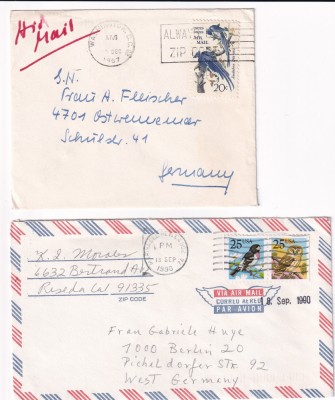 Air
Mail
WASHINGTON, D.C.
AM
SEP
1967
ALWAYS
ZIP CODE
UNITED STATES
AIR MAIL
20c
Frau H. Fleischer
4701 Ostwennemar
Schulstr. 41
Germany
K. I. Morales
6632 Bertrand Av
Reseda Cal 91335
ZIP CODE
PM
11 SEP
1990
25 USA
25 USA
VIA AIR MAIL
CORREO AEREO
PAR AVION
Sep. 1990
Frau Gabriele Huye
1000 Berlin 20
Pichelsdorfer Str. 92
West Germany